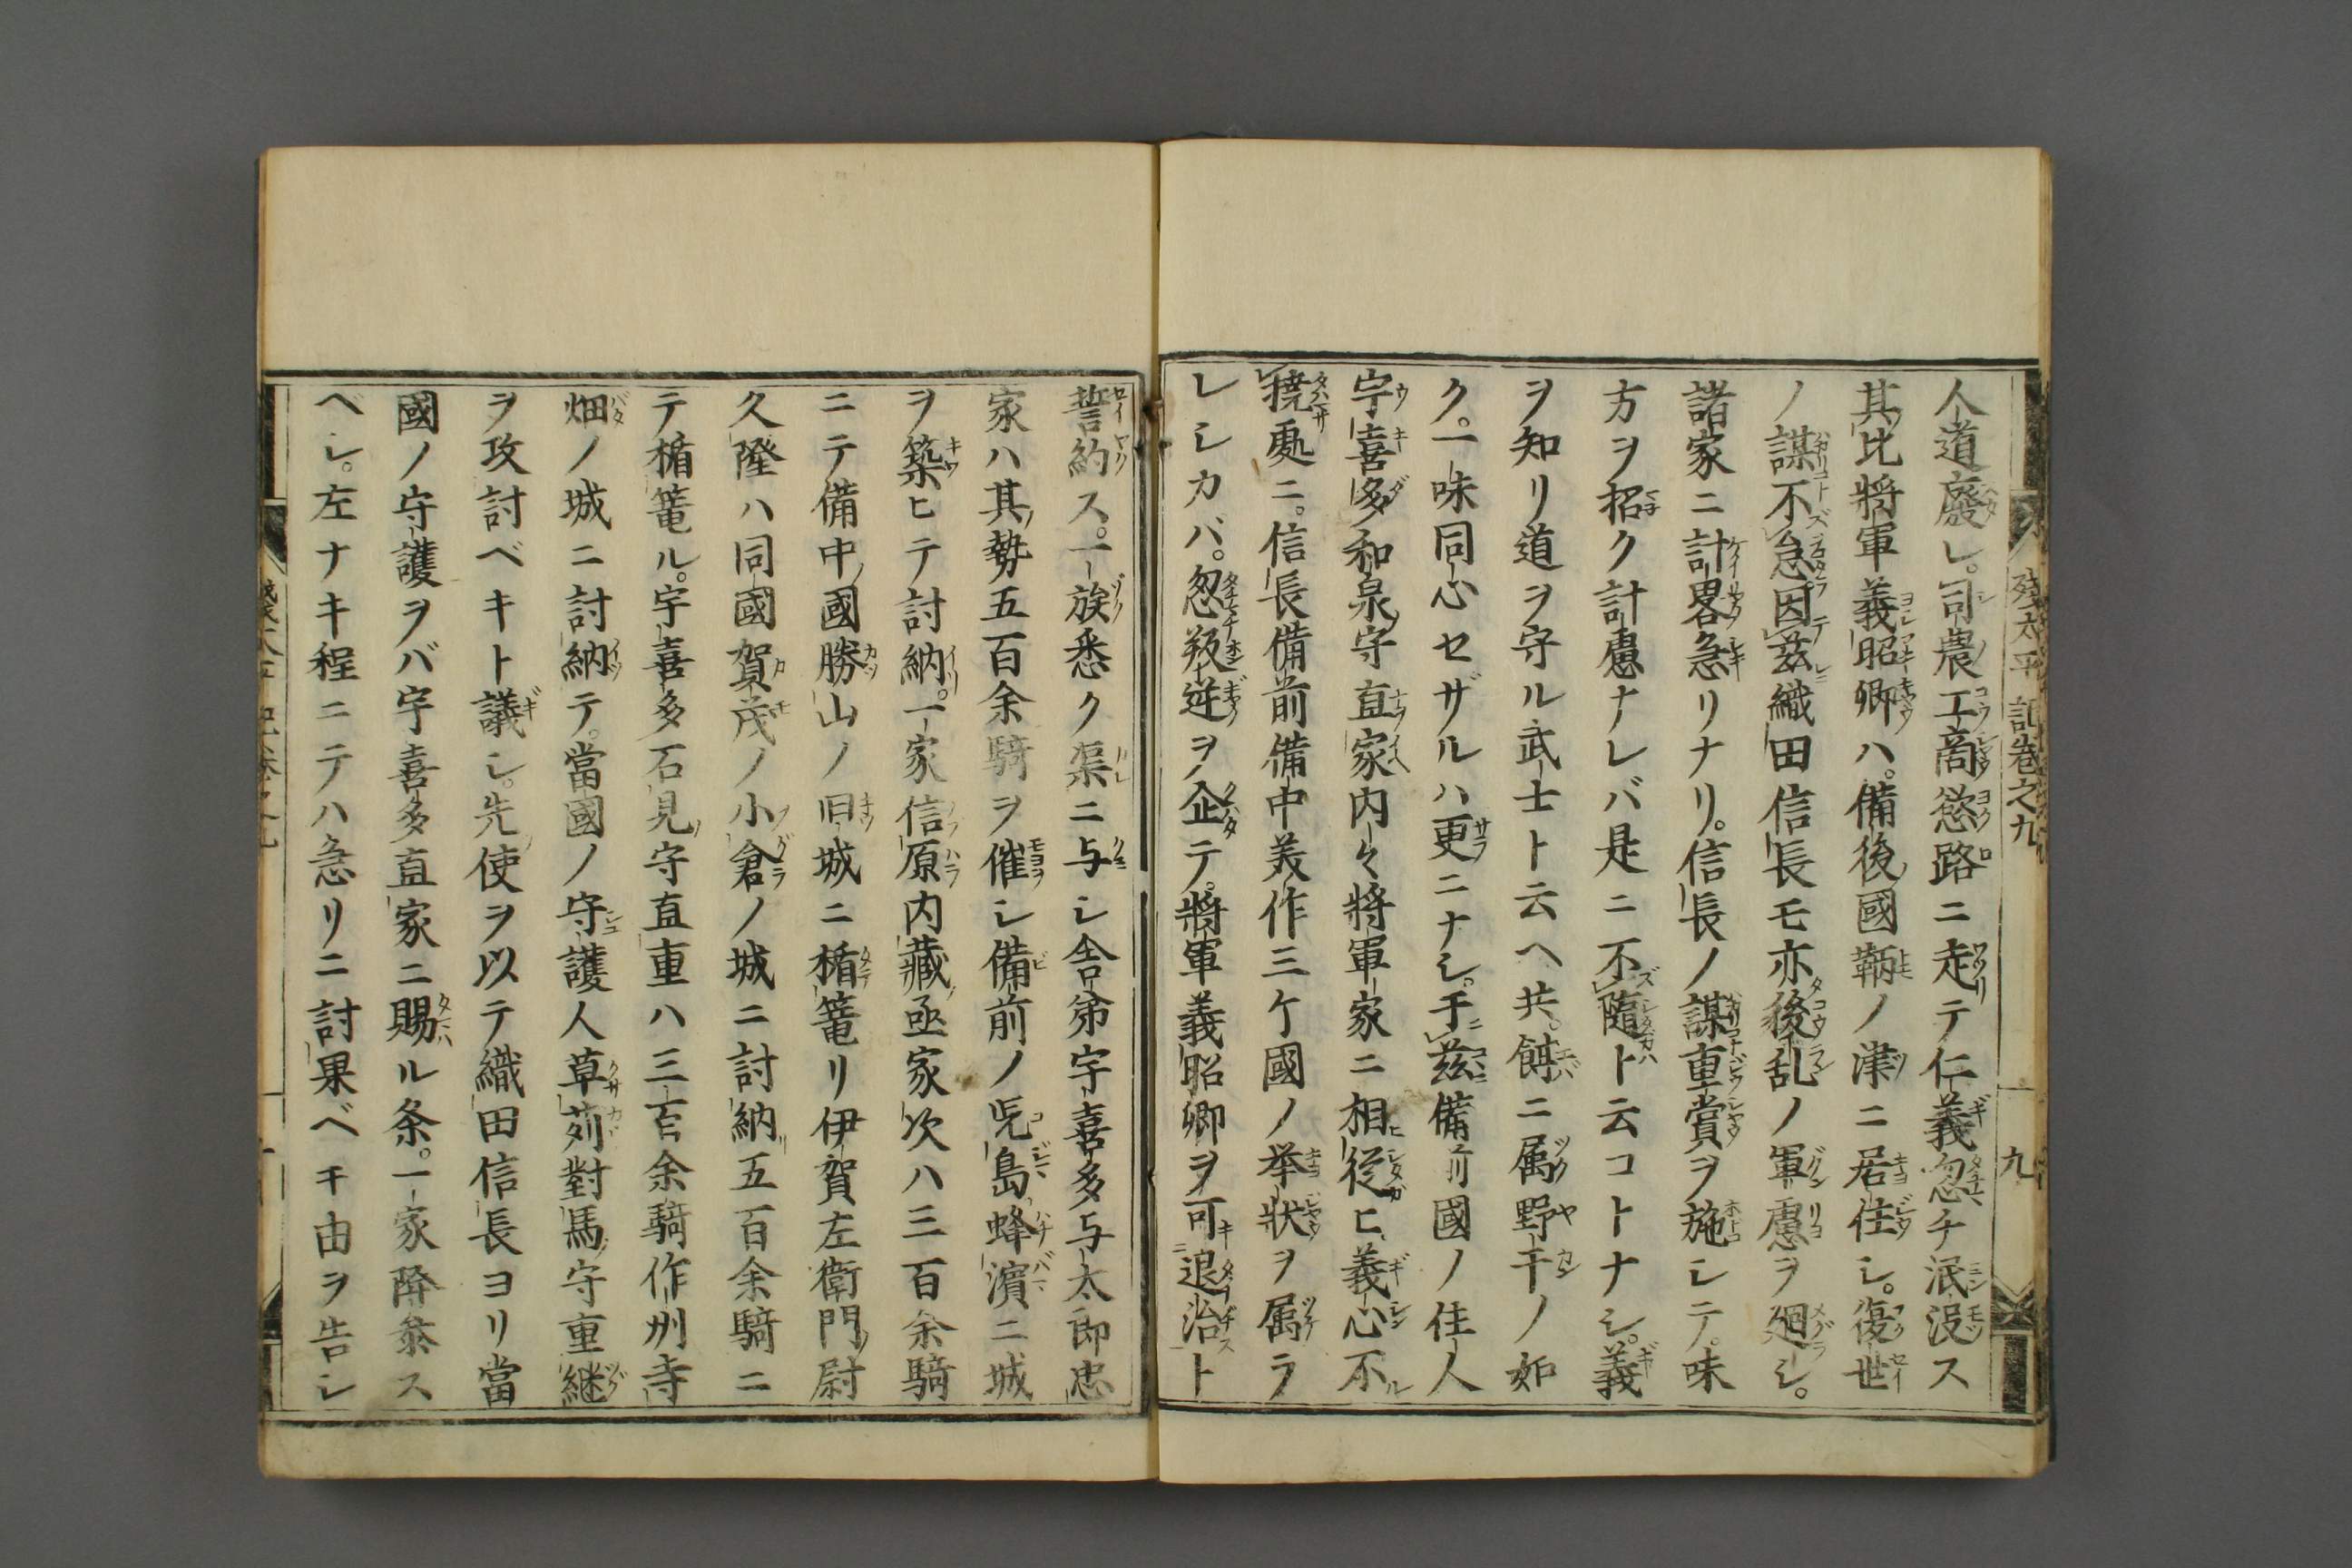 殘太平記卷之九
九
人道廢レ。司農工商慾路ニ走テ仁義忽チ泯没ス
其比將軍義昭卿ハ。備後國鞆ノ津ニ居住シ。復世
ノ謀不怠因茲織田信長モ亦後乱ノ軍慮ヲ廻シ。
諸家ニ計畧急リナリ。信長ノ謀重賞ヲ施レテ。味
方ヲ招ク計慮ナレバ是ニ不隨ト云コトナシ。義
ヲ知リ道ヲ守ル武士ト云ヘ共。餌ニ属野干ノ如
ク。一味同心セザルハ更ニナシ。于茲備前國ノ住人
宇喜多和泉守直家内々將軍家ニ相從ヒ義心不
撓処ニ。信長備前備中美作三ケ國ノ挙状ヲ属ラ
レシカバ。忽叛逆ヲ企テ。將軍義昭卿ヲ可退治ト
誓約ス。一族悉ク渠ニ与シ舎弟宇喜多与太郎忠
家ハ其勢五百余騎ヲ催シ備前ノ児島蜂濵ニ城
ヲ築ヒテ討納。一家信原内藏亟家次ハ三百余騎
ニテ備中國勝山ノ旧城ニ楯篭リ伊賀左衛門尉
久隆ハ同國賀茂ノ小倉ノ城ニ討納五百余騎ニ
テ楯篭ル。宇喜多石見守直重ハ三百余騎作州寺
畑ノ城ニ討納テ。當國ノ守護人草苅對馬守重継
ヲ攻討ベキト議シ。先使ヲ以テ織田信長ヨリ當
國ノ守護ヲバ宇喜多直家ニ賜ル条。一家降叅ス
ベシ。左ナキ程ニテハ急リニ討果ベキ由ヲ告シ